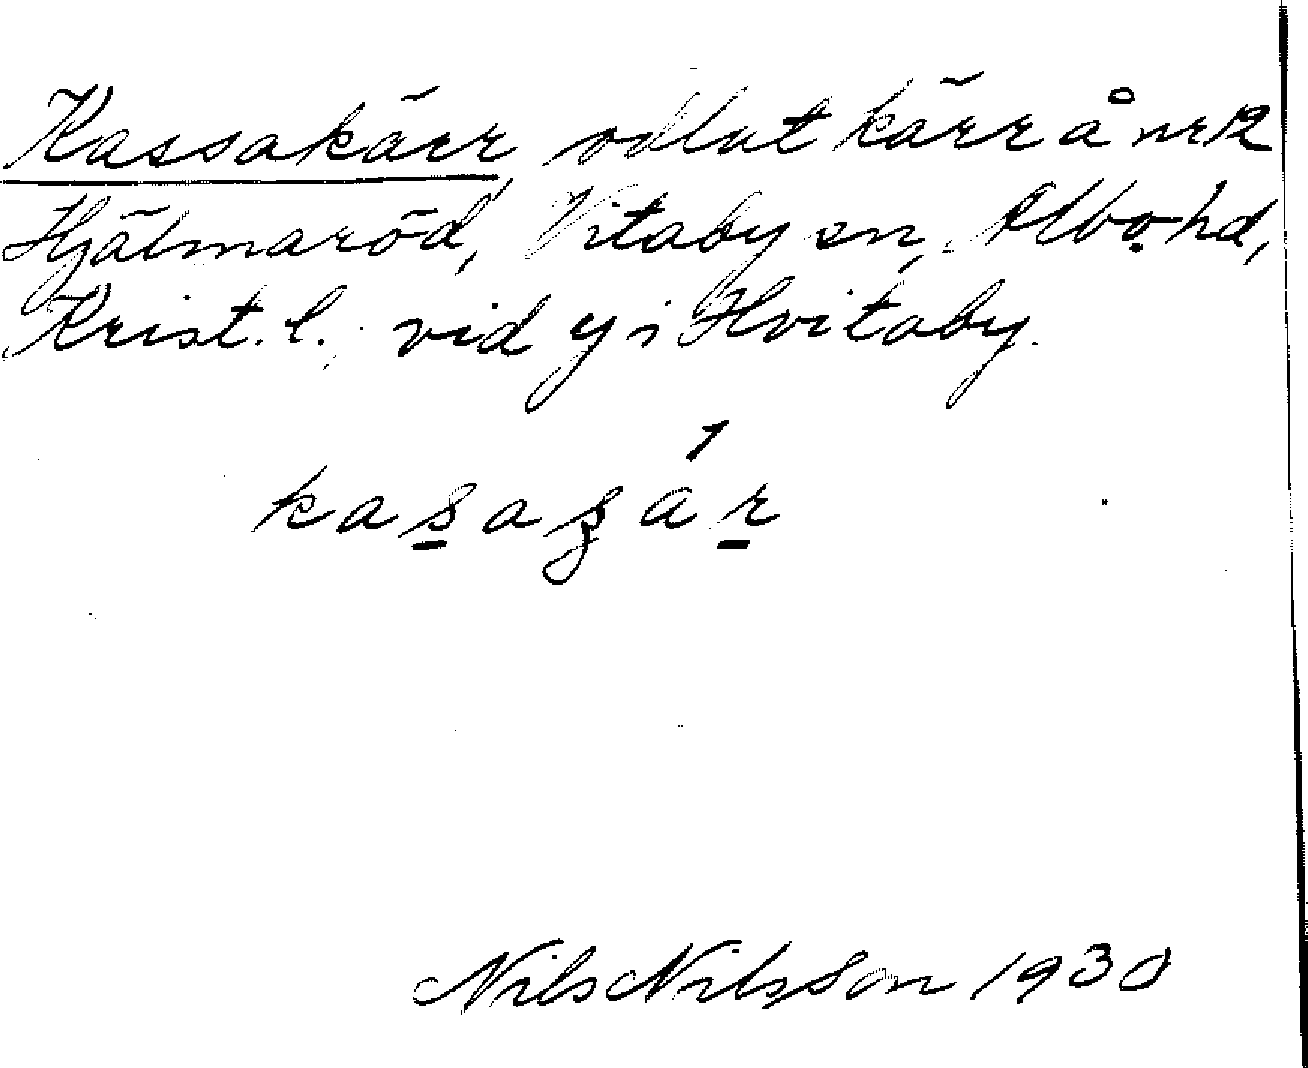 Kassakärr, odlat kärr å nr 12
Hjälmaröd, Vitaby sn, Albo hd,
Krist. l. vid y i Hvitaby.
Nils Nilsson 1930